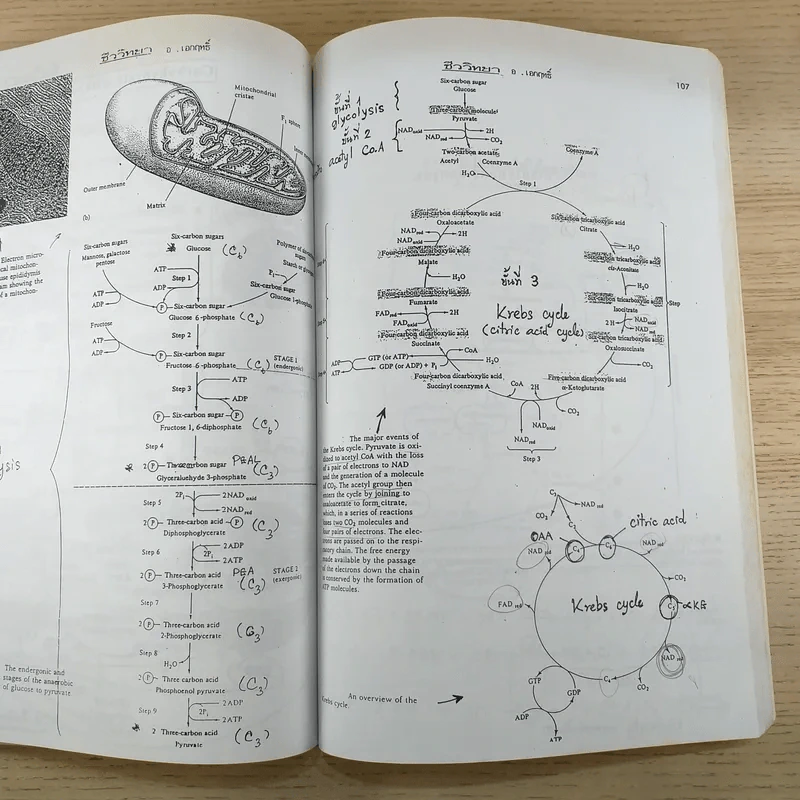 ชีววิทยา อ .เอกฤทธิ์
Mitochondrial
cristae
F₁ sphere
Outer membrane
Matrix
(b)
Electron micro-
cal mitochon-
use epididymis
am showing the
of a mitochon-
Six-carbon sugars
Mannose, galactose
pentose
Six-carbon sugars
Glucose (C₆)
Polymer of
Starch or
ATP
ADP
Step 1
ATP
ADP
Pᵢ
Six-carbon sugar
Glucose 1-phosphate
P Six-carbon sugar
Glucose 6-phosphate (C₆)
Fructose
ATP
ADP
Step 2
P Six-carbon sugar
Fructose 6-phosphate (C₆)
STAGE 1
(endergonic)
Step 3
ATP
ADP
P Six-carbon sugar P
Fructose 1, 6-diphosphate (C₆)
Step 4
2 P Three-carbon sugar PGAL
Glyceraldehyde 3-phosphate (C₃)
Step 5
2Pᵢ
2NAD oxid
2NAD red
2 P Three-carbon acid P
Diphosphoglycerate (C₃)
Step 6
2ADP
2Pᵢ
2ATP
2 P Three-carbon acid PGA
3-Phosphoglycerate (C₃)
STAGE 2
(exergonic)
Step 7
2 P Three-carbon acid
2-Phosphoglycerate (C₃)
Step 8
H₂O
2 P Three carbon acid
Phosphoenol pyruvate (C₃)
Step 9
2ADP
2Pᵢ
2ATP
2 Three-carbon acid
Pyruvate (C₃)
ysis
The endergonic and
stages of the anaerobic
of glucose to pyruvate
ชีววิทยา อ .เอกฤทธิ์
107
ขั้นที่ 1
glycolysis
ขั้นที่ 2
acetyl Co.A
Six-carbon sugar
Glucose
Three-carbon molecule
Pyruvate
NAD oxid
NAD red
2H
CO₂
Two-carbon acetate
Acetyl Coenzyme A
Coenzyme A
H₂O
Step 1
Four-carbon dicarboxylic acid
Oxaloacetate
NAD red
NAD oxid
2H
Four-carbon dicarboxylic acid
Malate
H₂O
Four-carbon dicarboxylic acid
Fumarate
FAD red
FAD oxid
2H
Four-carbon dicarboxylic acid
Succinate
ADP
ATP
GTP (or ATP)
GDP (or ADP) + Pᵢ
CoA
H₂O
Four-carbon dicarboxylic acid
Succinyl coenzyme A
ขั้นที่ 3
Krebs cycle
(citric acid cycle)
Six-carbon tricarboxylic acid
Citrate
H₂O
Six-carbon tricarboxylic acid
cis-Aconitate
H₂O
Six-carbon tricarboxylic acid
Isocitrate
2H
NAD oxid
NAD red
Six-carbon tricarboxylic acid
Oxalosuccinate
CO₂
Step
Five-carbon dicarboxylic acid
α-Ketoglutarate
CoA 2H
CO₂
NAD oxid
NAD red
Step 3
The major events of
the Krebs cycle. Pyruvate is oxi-
dized to acetyl CoA with the loss
of a pair of electrons to NAD
and the generation of a molecule
of CO₂. The acetyl group then
enters the cycle by joining to
oxaloacetate to form citrate,
which, in a series of reactions
loses two CO₂ molecules and
four pairs of electrons. The elec-
trons are passed on to the respi-
ratory chain. The free energy
made available by the passage
of the electrons down the chain
is conserved by the formation of
ATP molecules.
C₃
NAD red
CO₂
C₂
citric acid
OAA
NAD red
C₄
C₆
NAD red
CO₂
FAD red
Krebs cycle
C₅
αKG
NAD red
CO₂
C₄
GTP
GDP
ADP
ATP
An overview of the
Krebs cycle.